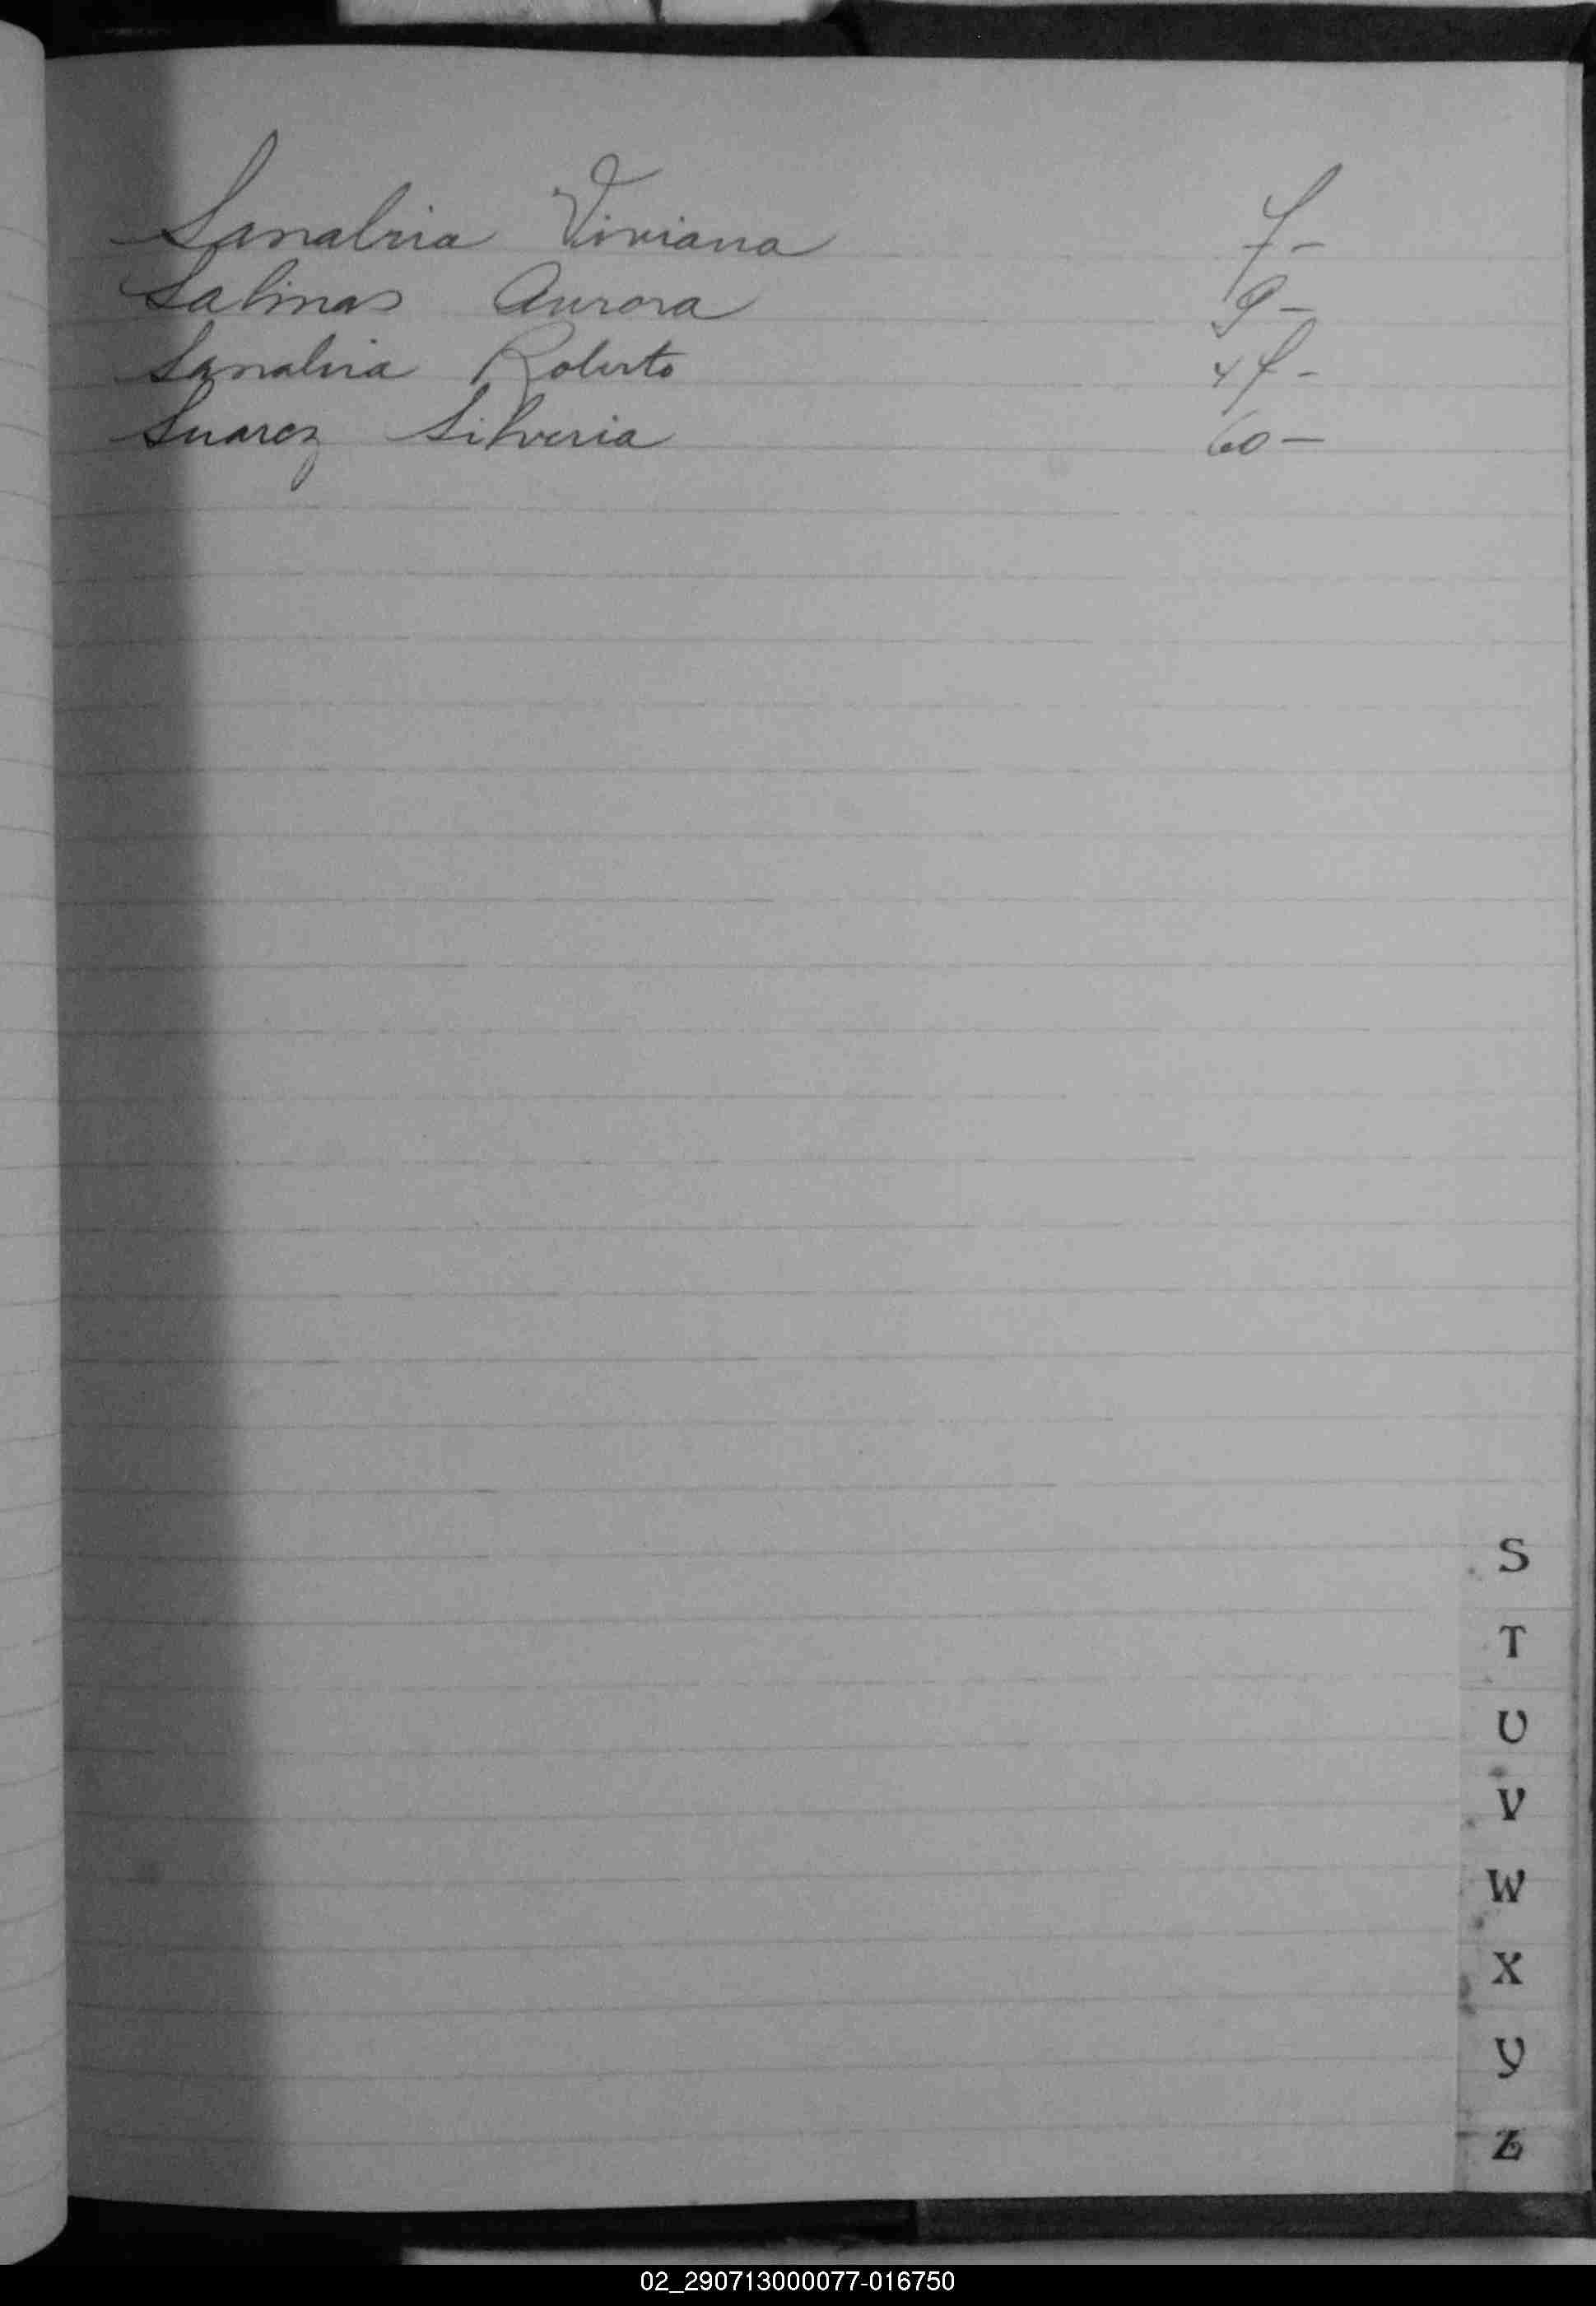 Sanabria Viviana 7-
Salinas Aurora 9-
Sanabria Roberto 47-
Suarez Silveria 60-
S
T
U
V
W
X
Y
Z
02_290713000077-016750